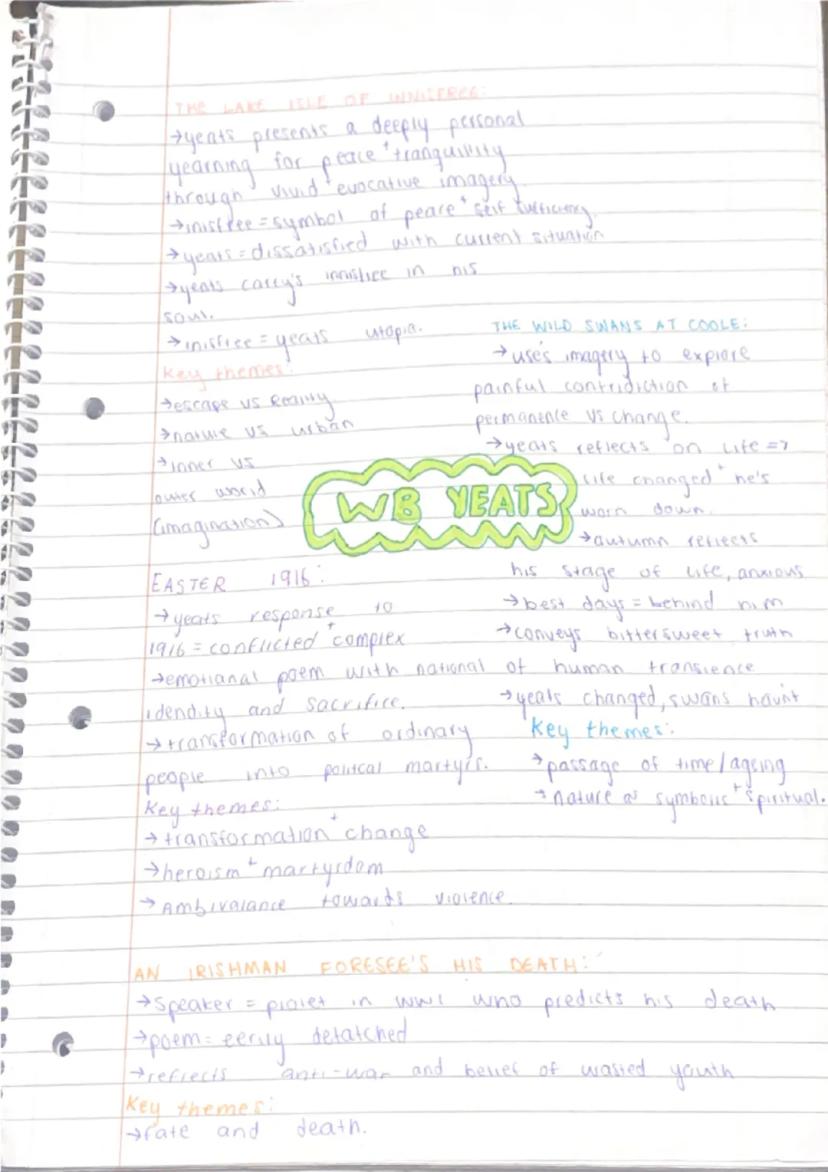 THE LAKE ISLE OF INNISFREE:
→yeats presents a deeply personal
yearning for peace + tranquility
through vivid + evocative imagery
→inisfree = symbol of peace + self sufficiency.
→yeats = dissatisfied with current situation
→yeats carry's innisfree in his
soul.
→inisfree = yeats utopia.
Key themes:
→escape vs Reality
→nature vs urban
→inner vs
outer world
(imagination)
THE WILD SWANS AT COOLE:
→uses imagery to explore
painful contridiction of
permanence vs change.
→yeats reflects on life =>
life changed + he's
worn down.
→autumn reflects
his stage of life, anxious
→best days = behind him
→conveys bittersweet truth
of human transience
→yeats changed, swans havint
Key themes:
→passage of time/ageing
→nature as symbolic + spiritual.
WB YEATS
EASTER 1916:
→yeats response to
1916 = conflicted + complex
→emotional poem with national
idendity and sacrifice.
→transformation of ordinary
people into politcal martyrs.
Key themes:
→transformation + change
→heroism + martyrdom
→Ambivalance towards violence.
AN IRISHMAN FORESEE'S HIS DEATH:
→Speaker = piolet in WW1 who predicts his death
→poem = eerily detatched
→reflects anti-war and belief of wasted youth
Key themes:
→fate and death.